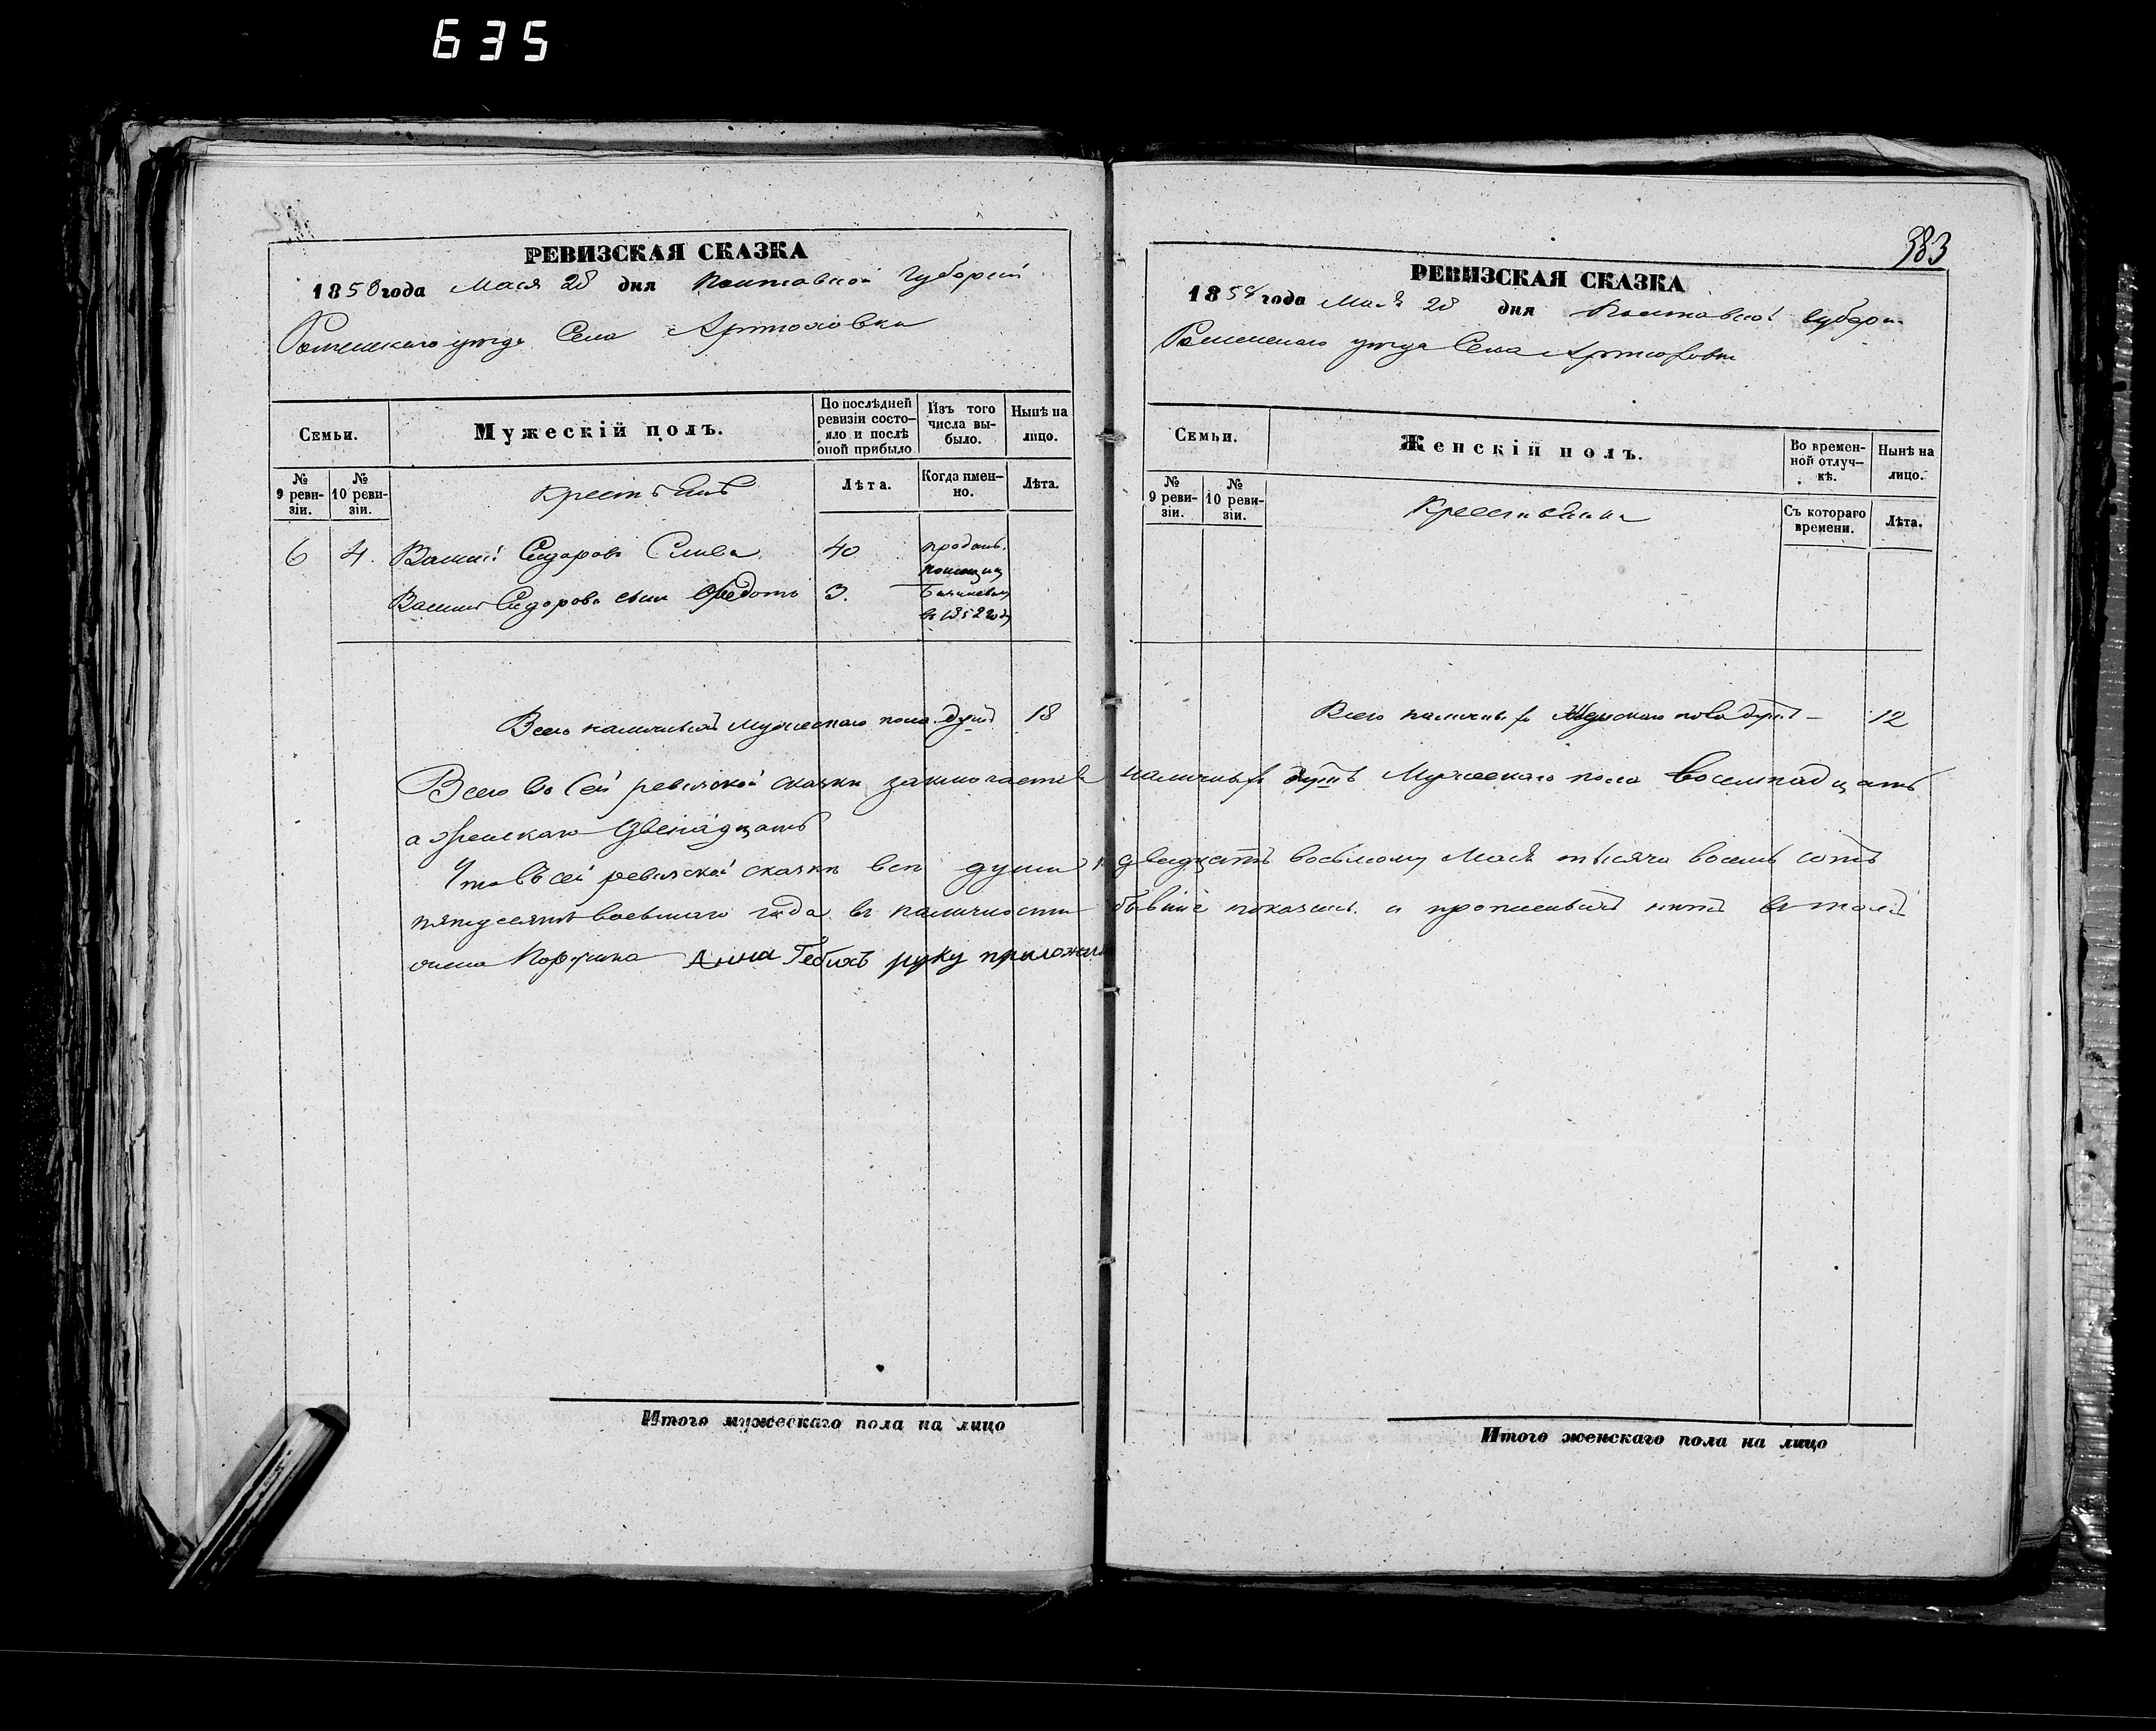 635
РЕВИЗСКАЯ СКАЗКА
1858 года Мая 28 дня Полтавской Губерніи
Роменскаго уѣзда Села Артюховки
Семьи.
Мужескій полъ.
По послѣдней ревизіи состо-
яло и послѣ
оной прибыло
Изъ того
числа вы-
было.
Нынѣ на
лицо.
№
9 реви-
зіи.
№
10 реви-
зіи.
Крестьяне
Лѣта.
Когда имен-
но.
Лѣта.
6 4. Сидоровъ Слива 40 проданъ
помещику
Сидорова сынъ Федотъ 3.
въ 1852 году
Всего наличныхъ мужескаго пола душъ 18
Итого мужескаго пола на лицо
383
РЕВИЗСКАЯ СКАЗКА
1858 года Мая 28 дня Полтавской Губерн
Роменскаго уѣзда Села Артюховки
Семьи.
Женскій полъ.
Во времен-
ной отлуч-
кѣ.
Нынѣ на
лицо.
№
9 реви-
зіи.
№
10 реви-
зіи.
Съ котораго
времени.
Лѣта.
Всего наличныхъ Женскаго пола душъ — 12
Всего въ сей ревизской сказкѣ заключается наличныхъ душъ Мужескаго пола восемнадцать
а женскаго двенадцать
Что въ сей ревизской сказкѣ всѣ души къ двадцать восьмому Мая тысяча восемь сотъ
пятдесятъ восьмаго года въ наличности бывшіе показаны и прописныхъ нѣтъ въ томъ
Анна Гебихъ руку приложила
Итого женскаго пола на лицо